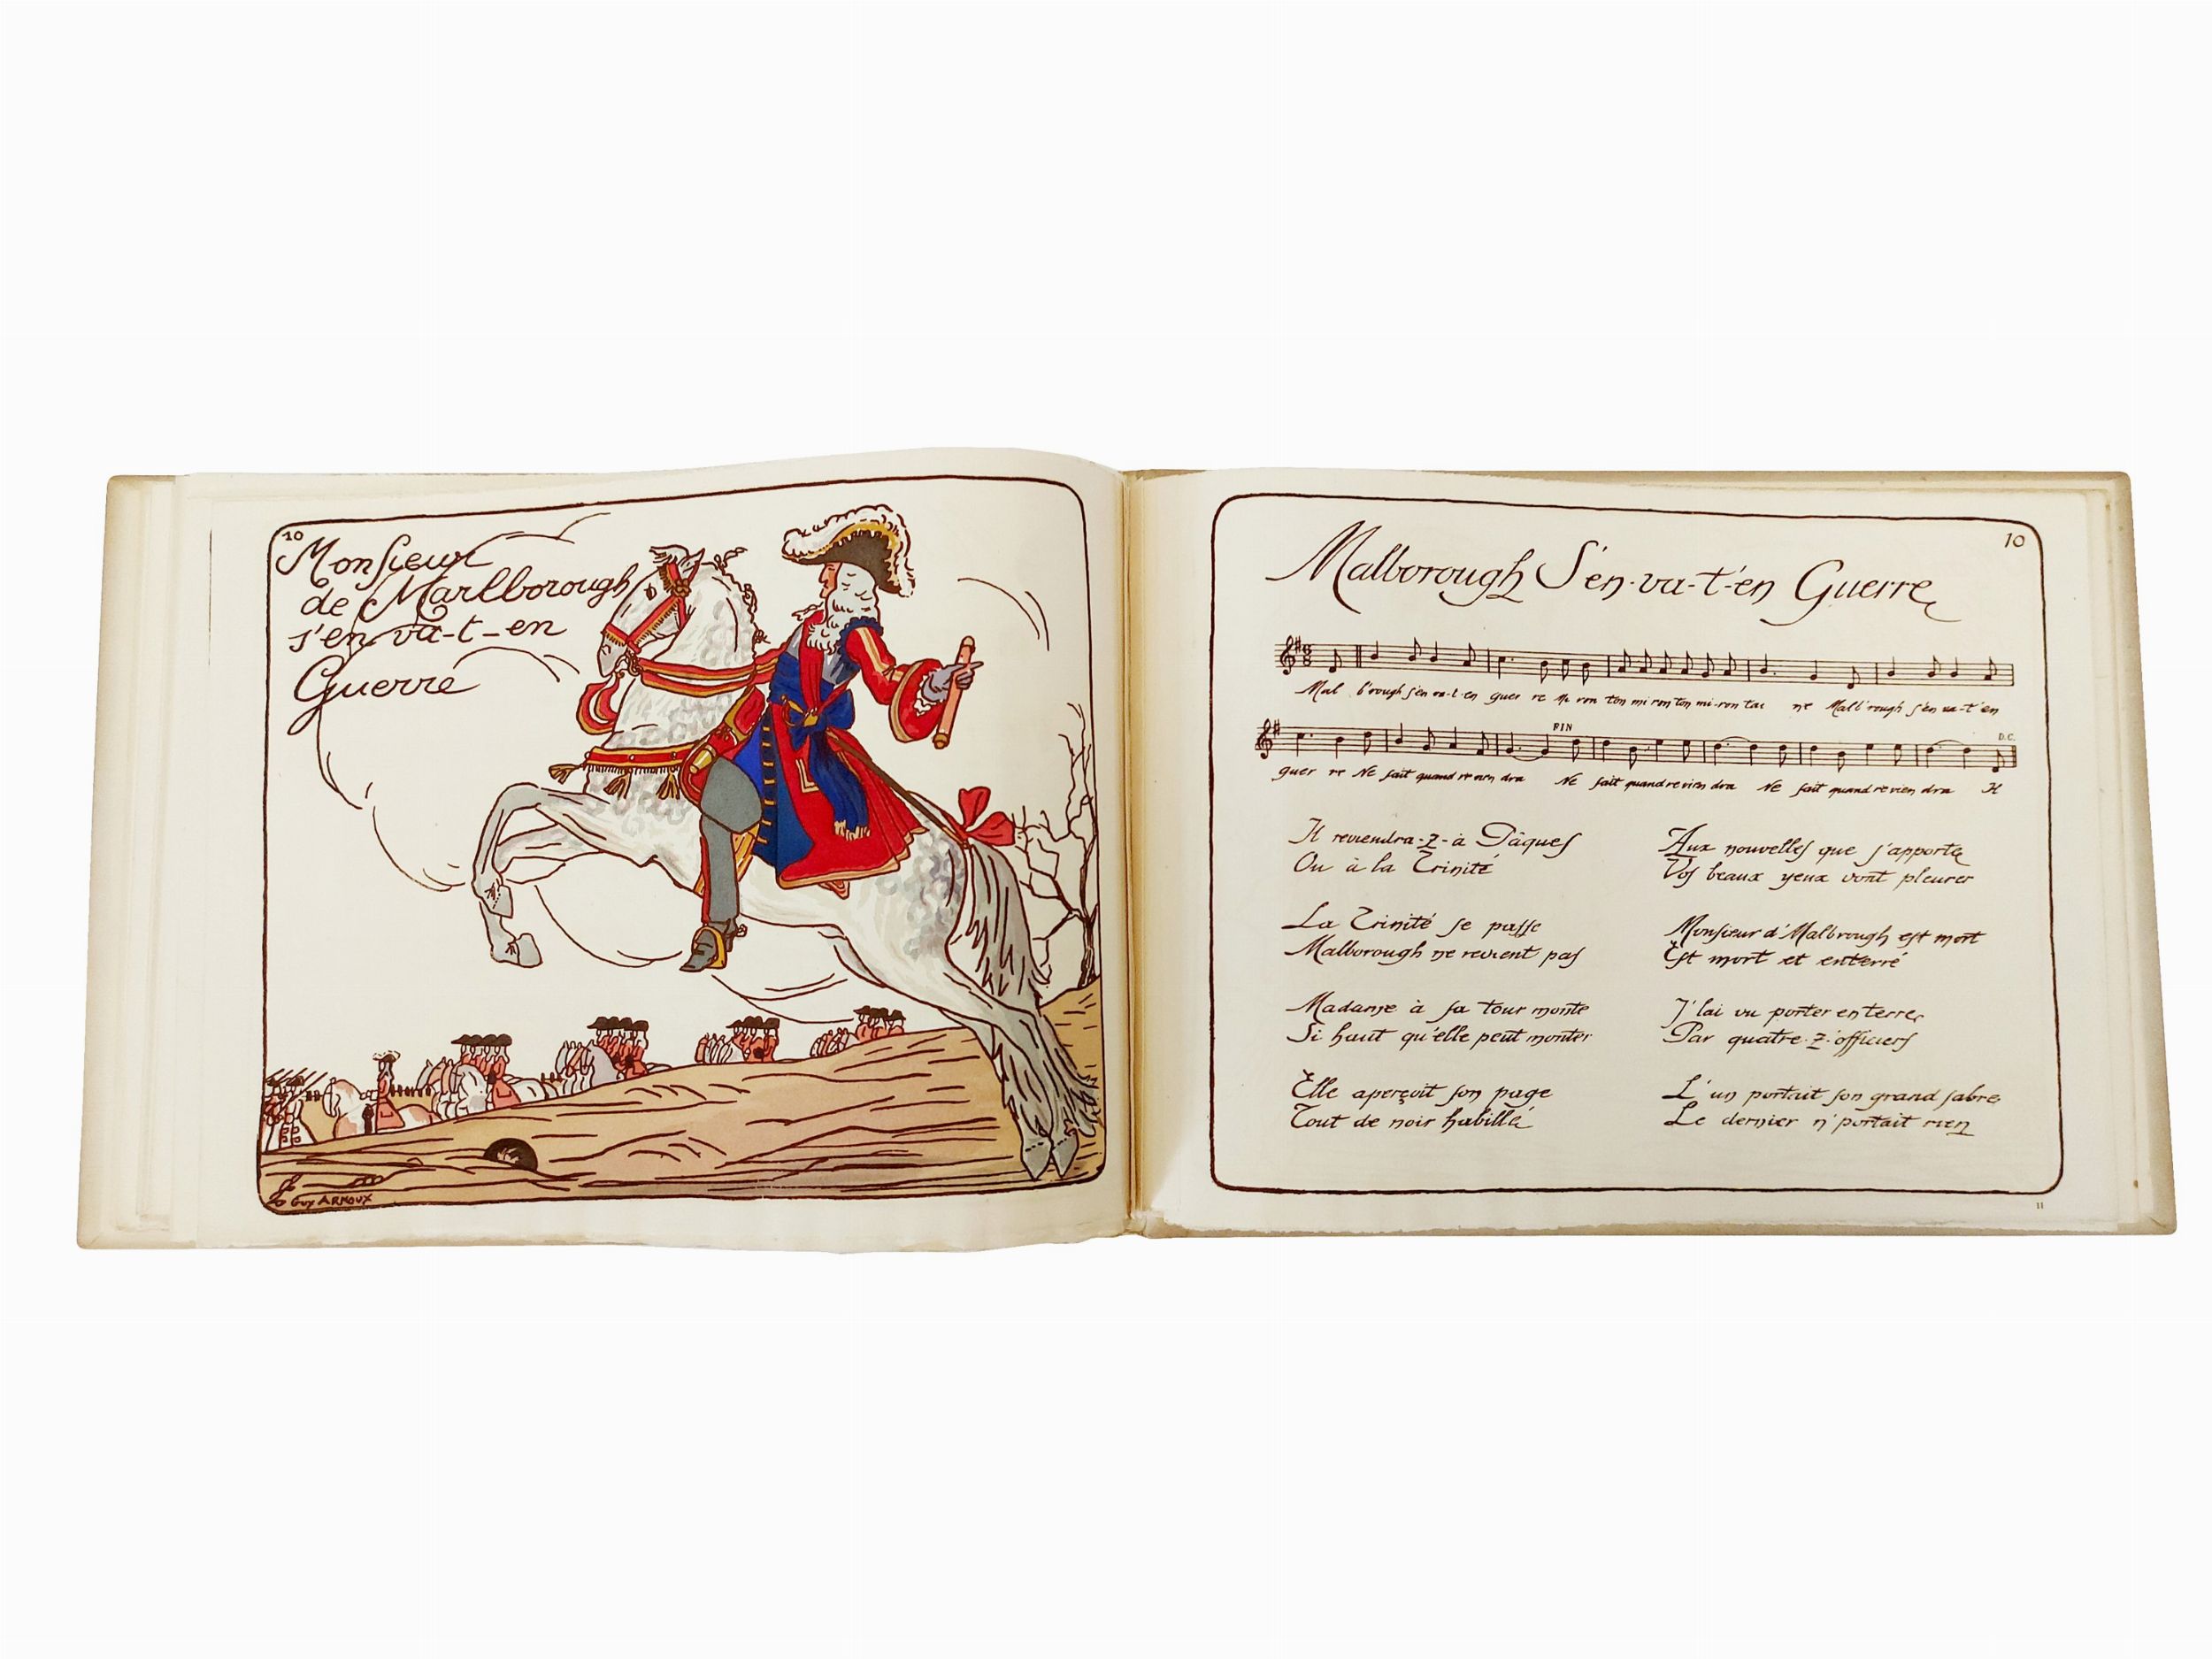 10
Monsieur
de Marlborough
s'en-va-t-en
Guerre
Guy ARNOUX
10
Malborough S'en-va-t'en Guerre
Mal b'rough s'en va-t-en guer re Mi ron ton mi ron ton mi-ron tai ne Malb'rough s'en va-t'en
FIN
D.C.
guer re Ne sait quand re vien dra Ne sait quand re vien dra Ne sait quand re vien dra Il
Il reviendra-z-à Pâques
Ou à la Trinité
La Trinité se passe
Malborough ne revient pas
Madame à sa tour monte
Si haut qu'elle peut monter
Elle aperçoit son page
Tout de noir habillé
Aux nouvelles que j'apporte
Vos beaux yeux vont pleurer
Monsieur d'Malbrough est mort
Est mort et enterré
J'lai vu porter en terre
Par quatre-z-officiers
L'un portait son grand sabre
Le dernier n'portait rien
11